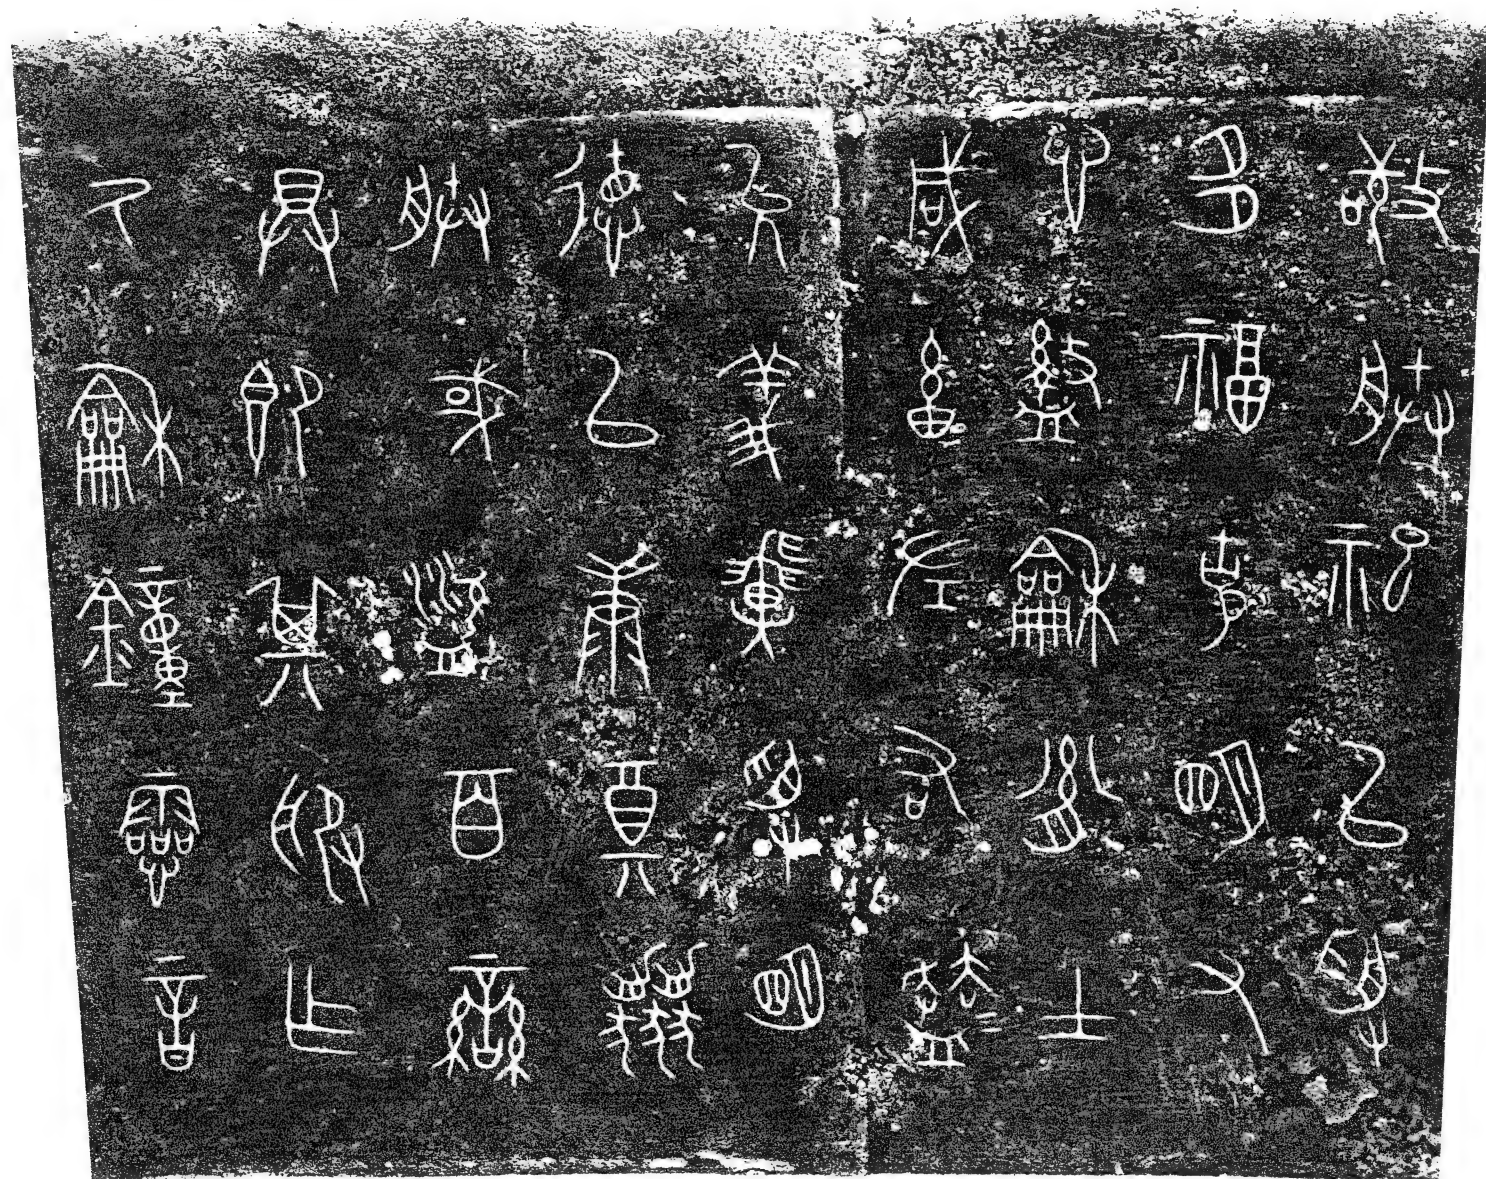 敬朕祀以受
多福克明又
心盭龢胤士
咸畜左右藹=
允義翼受明
德以康奠協
朕國盜百蠻
具即其服乍
氒龢鐘靈音